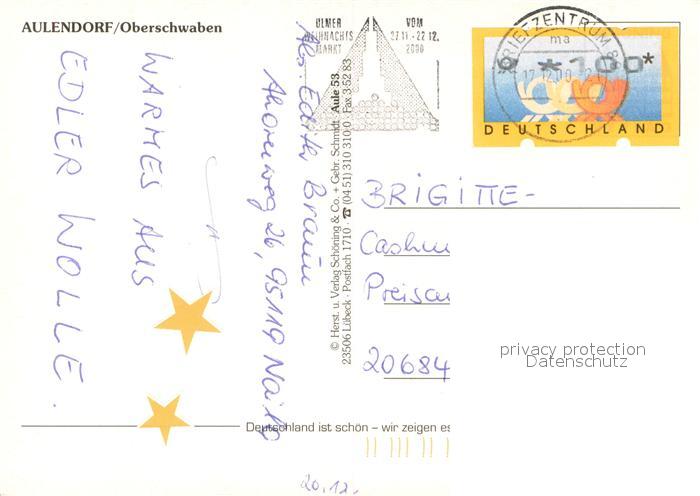 AULENDORF/Oberschwaben
WARMES AUS
EDLER WOLLE.
Abs Edith Braun
Ahornweg 26, 95119 Naila
© Herst. u. Verlag Schöning & Co. + Gebr. Schmidt
23506 Lübeck · Postfach 1710 · ☎ (04 51) 310 310-0 · Fax 3 52 83
Aule 53.
ULMER VOM
WEIHNACHTS 27.11.-22.12.
MARKT 2000
BRIEFZENTRUM 8
ma
17.12.00
*100*
DEUTSCHLAND
BRIGITTE-
Cashm
Preisau
20684
privacy protection
Datenschutz
Deutschland ist schön – wir zeigen es
20.12.